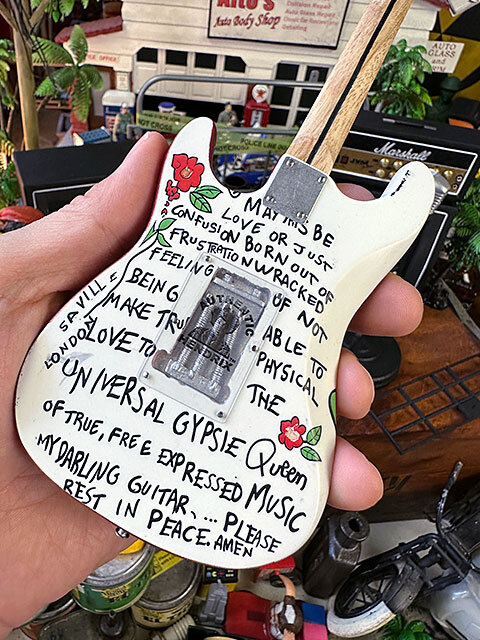 Alto's
Auto Body Shop
Collision Repair
Auto Glass Repair
Detailing
OFFICE
AUTO
GLASS
NOT CROSS
POLICE LINE DO NOT
Marshall
MAY THIS BE
LOVE OR JUST
CONFUSION BORN OUT OF
FRUSTRATION WRACKED
FEELING OF NOT
BEING ABLE TO
MAKE TRU PHYSICAL
LOVE TO THE
UNIVERSAL GYPSIE Queen
OF TRUE, FREE EXPRESSED MUSIC
MY DARLING GUITAR.... PLEASE
REST IN PEACE. AMEN
SAVILLE
LONDON
AUTHENTIC
HENDRIX